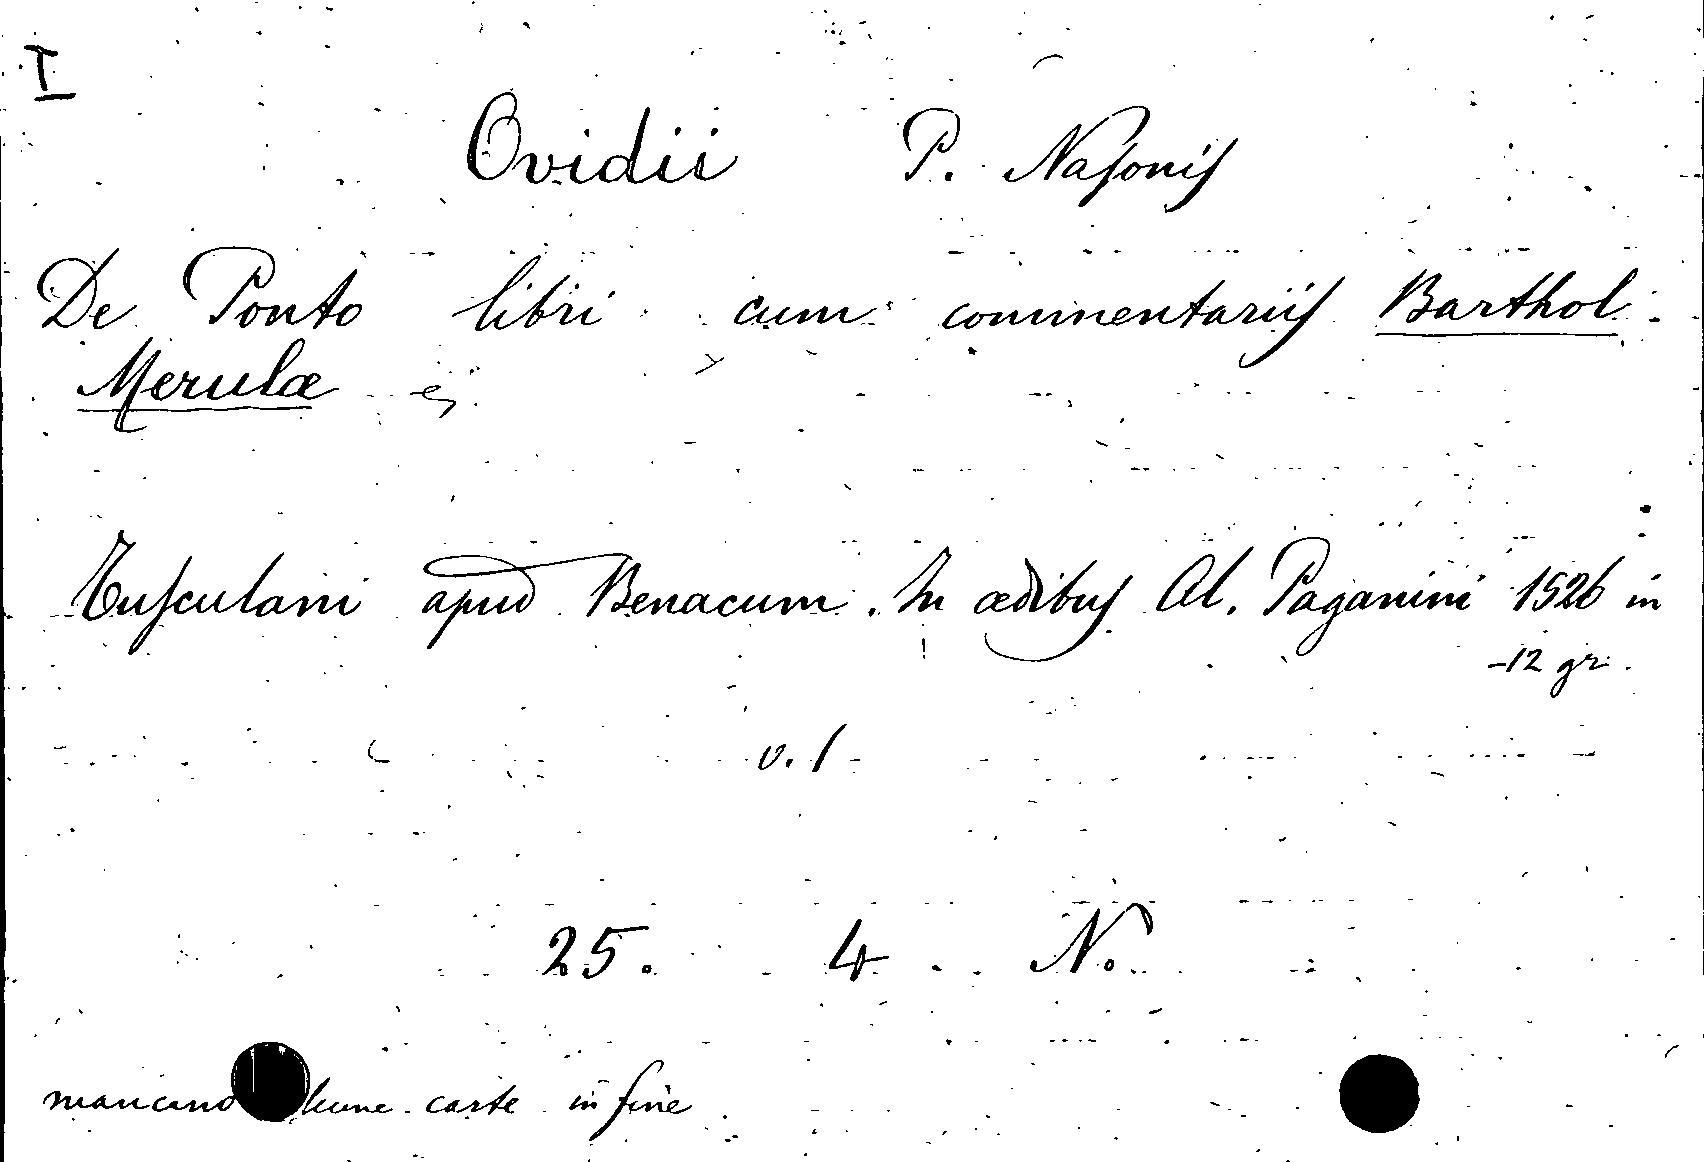 I
Ovidii P. Nasonis
De Ponto libri cum commentariis Barthol.
Merulæ
Tusculani apud Benacum. In ædibus Al. Paganini 1526 in
-12 gr.
v. 1
25. 4 N.
mancano carte in fine